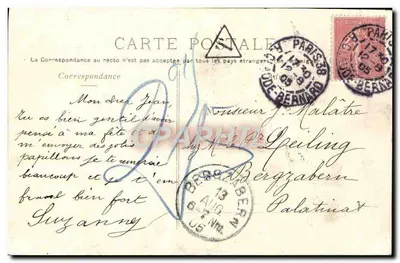 CARTE POSTALE
T
La Correspondance au recto n'est pas acceptée par tous les pays étrangers
Correspondance
Mon cher Jean,
Tu es bien gentil d'avoir
pensé à ma fête et de
m'envoyer des jolis
papillons je te remercie
beaucoup et je t'em
brasse bien fort
Suzanne
Monsieur J. Malâtre
Speiling
Bergzabern
Palatinat
PARIS 38
17 30
12 8
05
R. CLAUDE-BERNARD
PARIS 38
17 30
05
BERGZABERN
13
AUG
6-7 Nm.
05